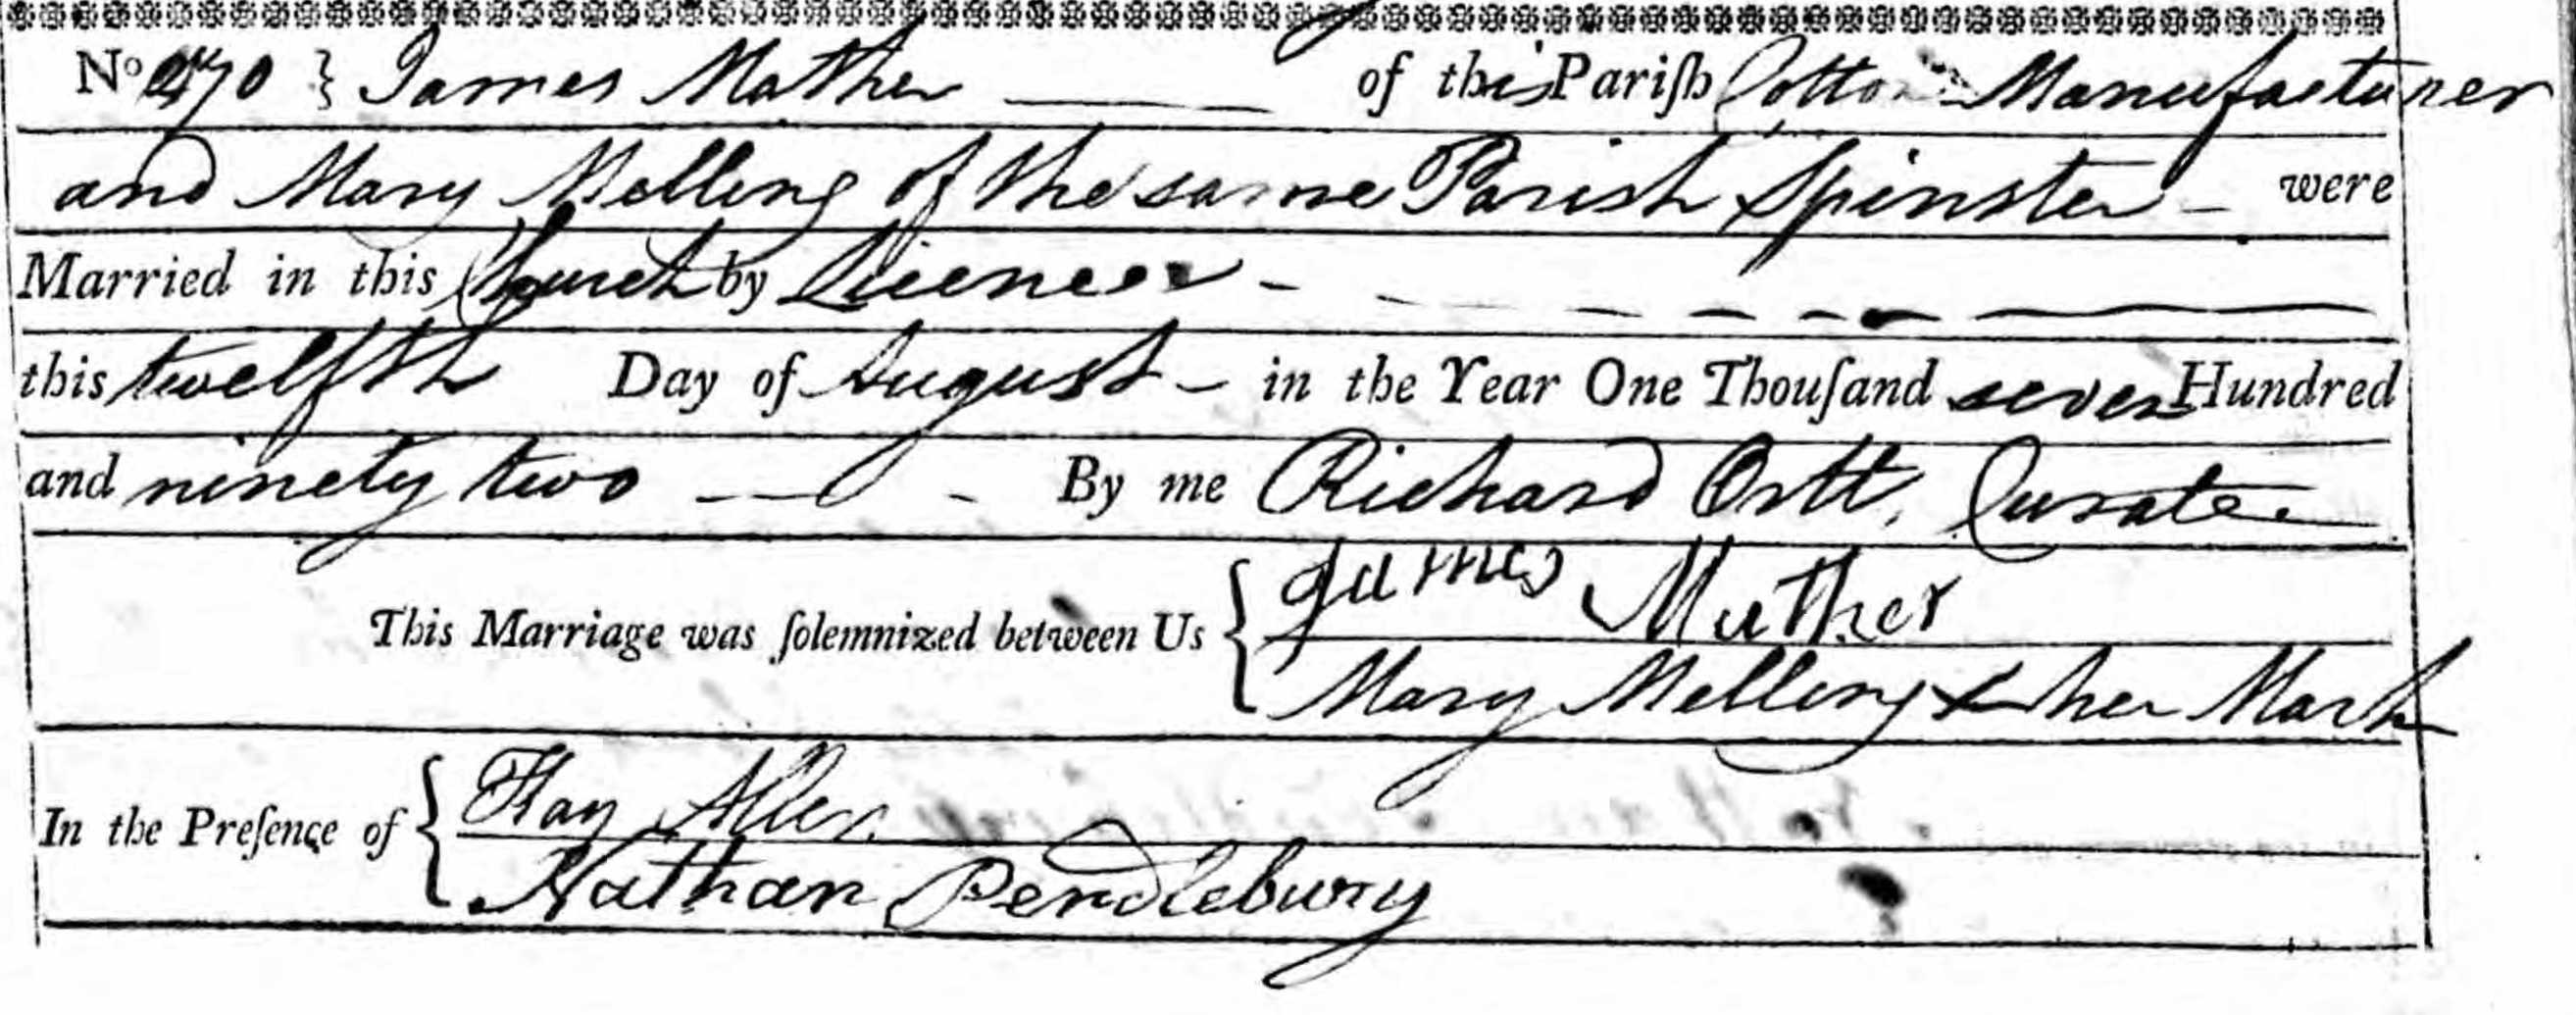 No 270 } James Mather of this Pariſh Cotton Manufacturer
and Mary Melling of the same Parish Spinster - were
Married in this Church by Licence -
this twelfth Day of August - in the Year One Thouſand seven Hundred
and ninety two By me Richard Ortt, Curate
This Marriage was ſolemnized between Us { James Mather
Mary Melling x her Mark
In the Preſence of { Hay Allen
Nathan Pendlebury